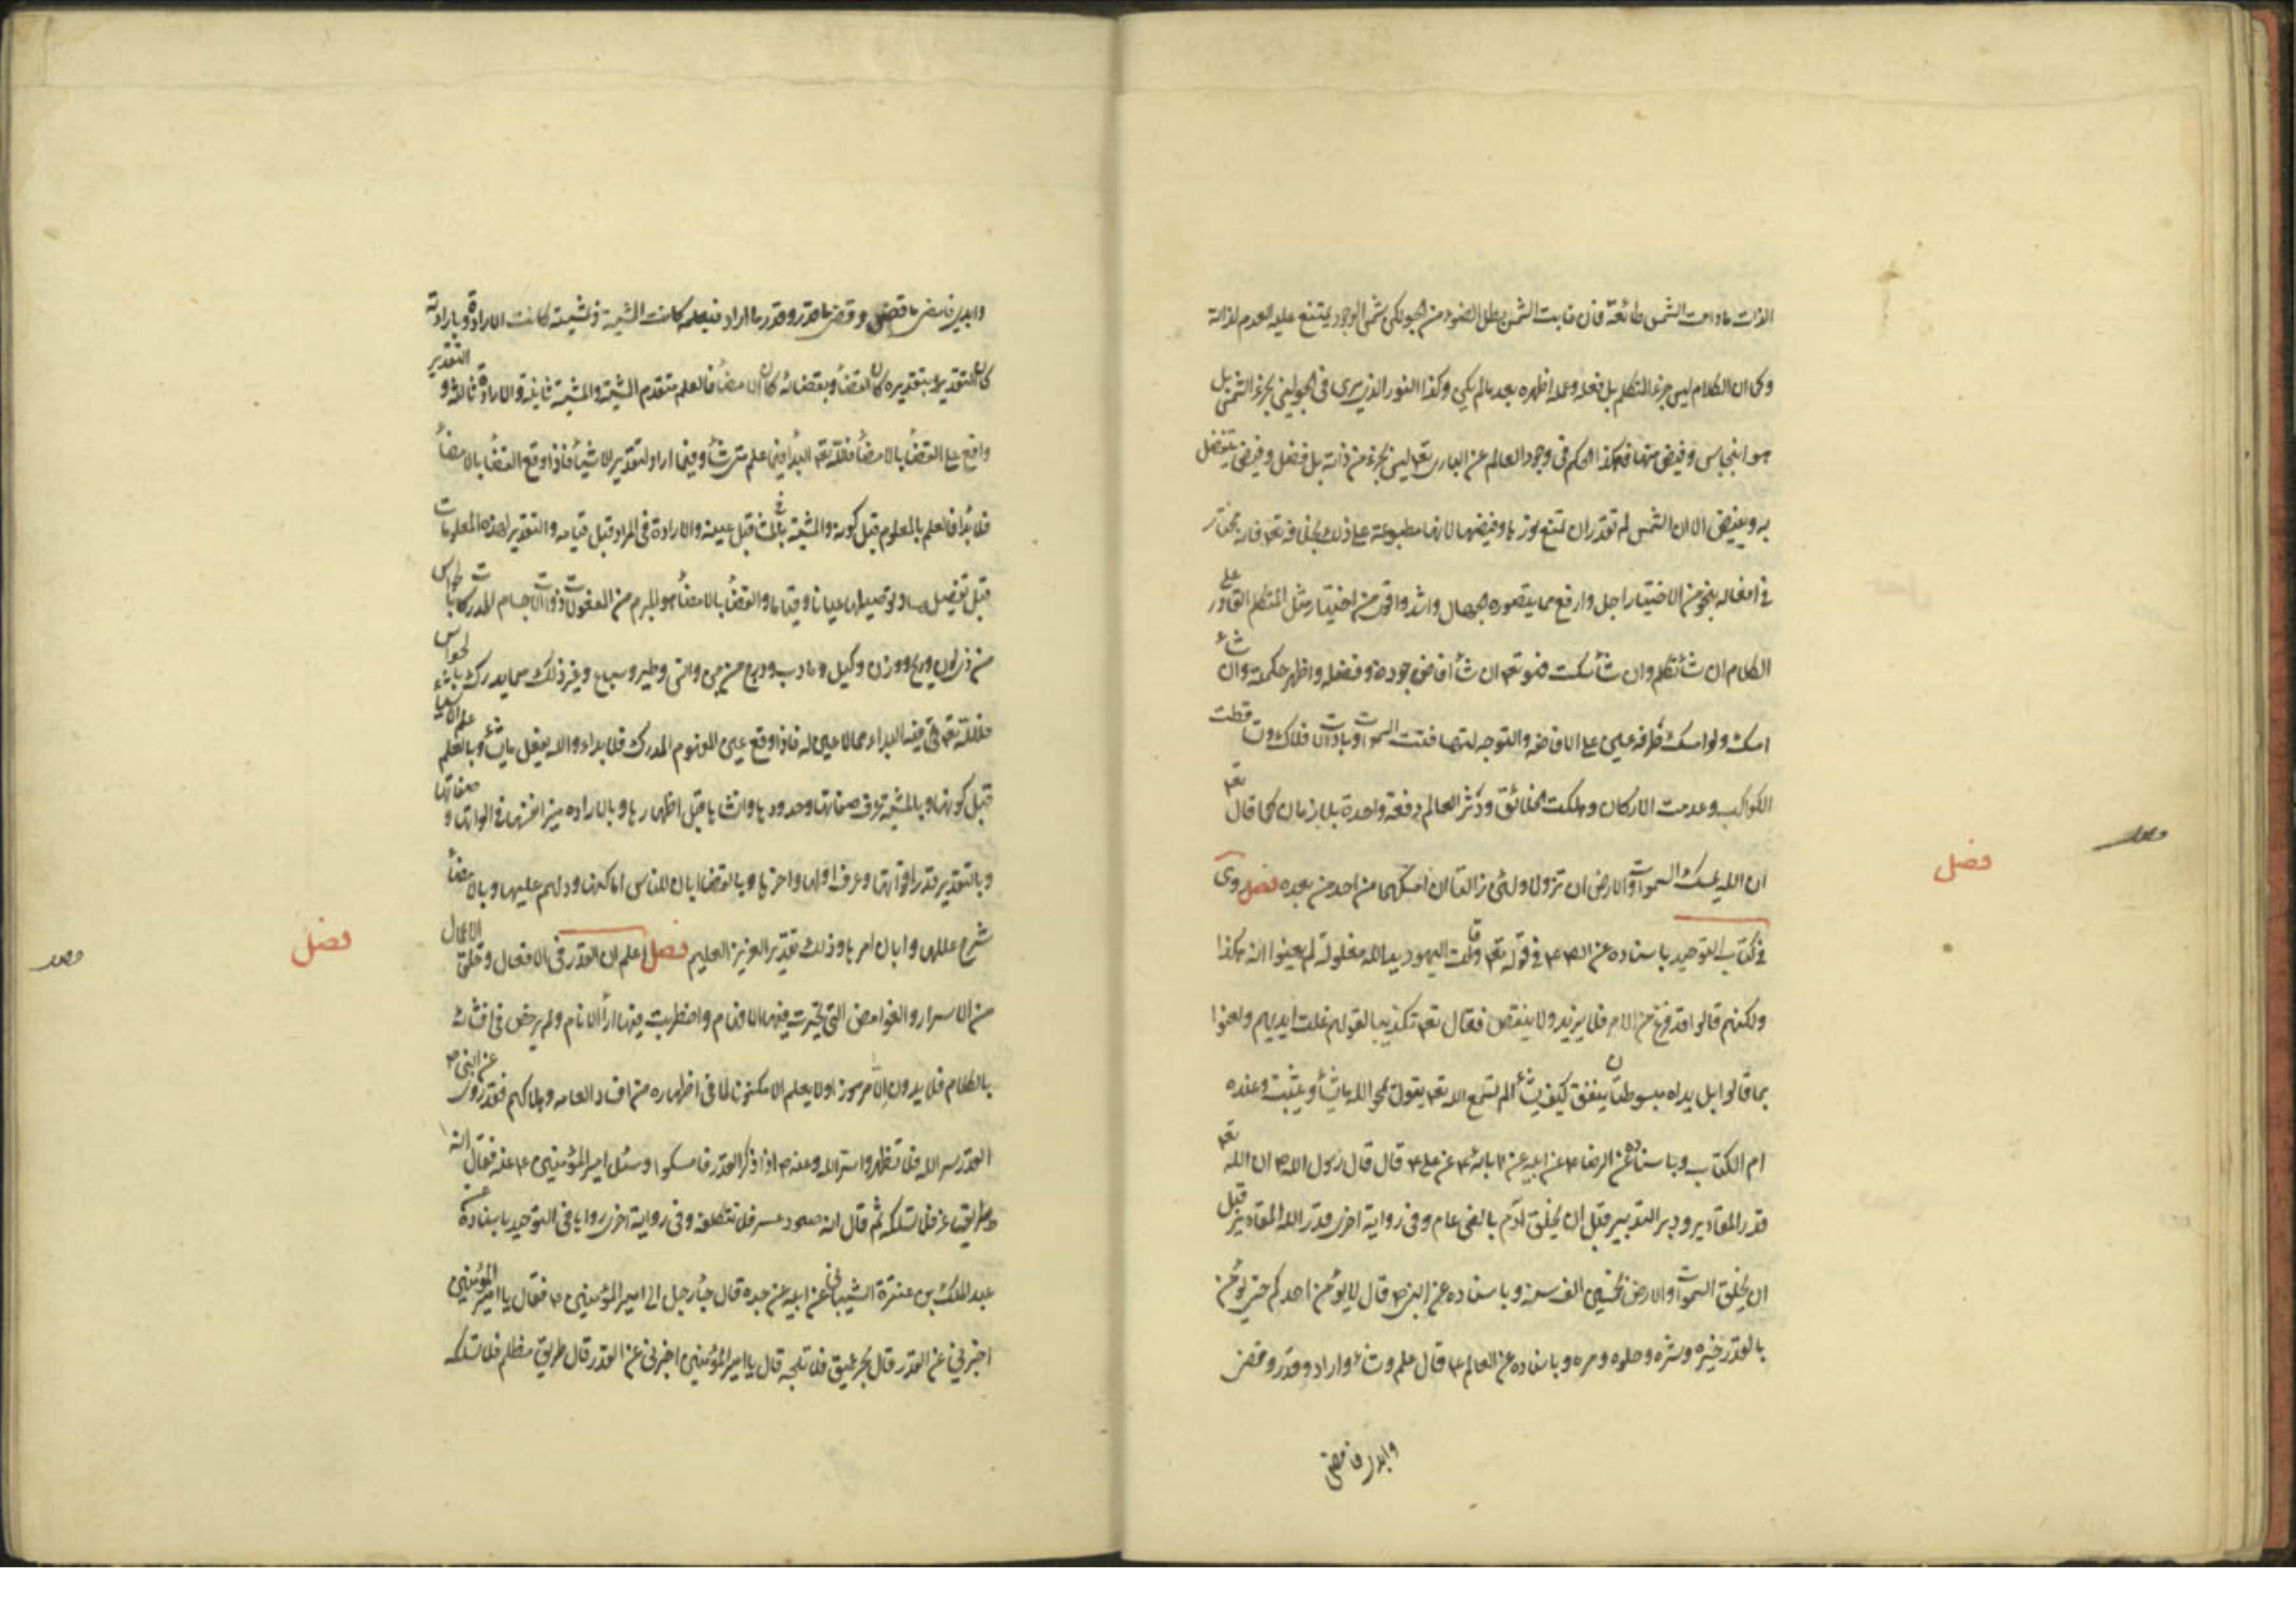 الذات ما دامت الشمس طالعة فان غابت الشمس بطل الضوء من الجو لكن شمس الوجود يمتنع عليه العدم لذاته
وكما ان الكلام ليس جزء المتكلم بل فعله وعمله اظهره بعد ما لم يكن وكذا النور الذي يرى في الجو ليس بجزء الشمس بل
هو انبجاس وفيض منها فهكذا الحكم في وجود العالم عن الباري تعه ليس بجزء من ذاته بل فضل وفيض يتفضل
به ويفيض الا ان الشمس لم تقدر ان تمنع نورها وفيضها لانها مطبوعة على ذلك بخلافه تعه فانه مختار
في افعاله بنحو من الاختيار اجل وارفع مما يتصوره الجهال واشد واقوى من اختيار مثل المتكلم القادر على
الكلام ان شاء تكلم وان شاء سكت فهو تعه ان شاء افاض جوده وفضله واظهر حكمته وان شاء
امسك ولو امسك طرفة عين على الافاضة والتوجه لتهافتت السموات وبادت الافلاك وتساقطت
الكواكب وعدمت الاركان وهلكت الخلائق ودثر العالم دفعة واحدة بلا زمان كما قال تعه
ان الله يمسك السموات والارض ان تزولا ولئن زالتا ان امسكهما من احد من بعده فصل روى
فصل
في كتاب التوحيد باسناده عن الصه ع في قوله تعه وقالت اليهود يد الله مغلولة لم يعنوا انه هكذا
ولكنهم قالوا قد فرغ من الامر فلا يزيد ولا ينقص فقال تعه تكذيبا لقولهم غلت ايديهم ولعنوا
بما قالوا بل يداه مبسوطتان ينفق كيف يشاء الم تسمع الله تعه يقول يمحو الله ما يشاء ويثبت وعنده
ام الكتاب وباسناده عن الرضا ع عن ابيه عن آبائه ع عن علي ع قال قال رسول الله ص ان الله تعه
قدر المقادير ودبر التدبير قبل ان يخلق آدم بالفي عام وفي رواية اخرى قدر الله المقادير قبل
ان يخلق السموات والارض بخمسين الف سنة وباسناده عن النبي ص قال لا يؤمن احدكم حتى يؤمن
بالقدر خيره وشره وحلوه ومره وباسناده عن العالم ع قال علم وشاء واراد وقدر وقضى
وابدى فامضى
وابدى فامضى ما قضى وقضى ما قدر وقدر ما اراد فبعلمه كانت المشية وبمشيته كانت الارادة وبارادته
كان التقدير وبتقديره كان القضاء وبقضائه كان الامضاء فالعلم متقدم المشية والمشية ثانية والارادة ثالثة والتقدير
واقع على القضاء بالامضاء فلله تعه البداء فيما علم متى شاء وفيما اراد لتقدير الاشياء فاذا وقع القضاء بالامضاء
فلا بداء فالعلم بالمعلوم قبل كونه والمشية في المشاء قبل عينه والارادة في المراد قبل قيامه والتقدير لهذه المعلومات
قبل تفصيلها وتوصيلها عيانا وقياما والقضاء بالامضاء هو المبرم من المفعولات ذوات الاجسام المدركات بالحواس
من ذي لون وريح ووزن وكيل وما دب ودرج من جن وانس وطير وسباع وغير ذلك مما يدرك بالحواس
فلله تعه فيه البداء مما لا عين له فاذا وقع عين المفهوم المدرك فلا بداء والله يفعل ما يشاء وبالعلم علم الاشياء
قبل كونها وبالمشية عرف صفاتها وحدودها وانشاها قبل اظهارها وبالارادة ميز انفسها في الوانها وصفاتها
وبالتقدير قدر اقواتها وعرف اولها واخرها وبالقضاء ابان للناس اماكنها ودلهم عليها وبالامضاء
شرح عللها وابان امرها وذلك تقدير العزيز العليم فصل اعلم ان القدر في الافعال وخلق الاعمال
فصل
من الاسرار والغوامض التي تحيرت فيها الافهام واضطربت فيها اراء الانام ولم يرخص في افشائه
بالكلام فلا يدون الا مرموزا ولا يعلم الا مكنونا لما في اظهاره من افساد العامه وهلاكهم فقد روى عن النبي ص
القدر سر الله فلا تظهروا سر الله وعنه ص اذا ذكر القدر فامسكوا وسئل امير المؤمنين ع عنه فقال انه
طريق وعر فلا تسلكه ثم قال انه صعود عسر فلا تتكلفه وفي رواية اخرى رواها في التوحيد باسناده عن
عبد الملك بن عنترة الشيباني عن ابيه عن جده قال جاء رجل الى امير المؤمنين ع فقال يا امير المؤمنين
اخبرني عن القدر قال بحر عميق فلا تلجه قال يا امير المؤمنين اخبرني عن القدر قال طريق مظلم فلا تسلكه